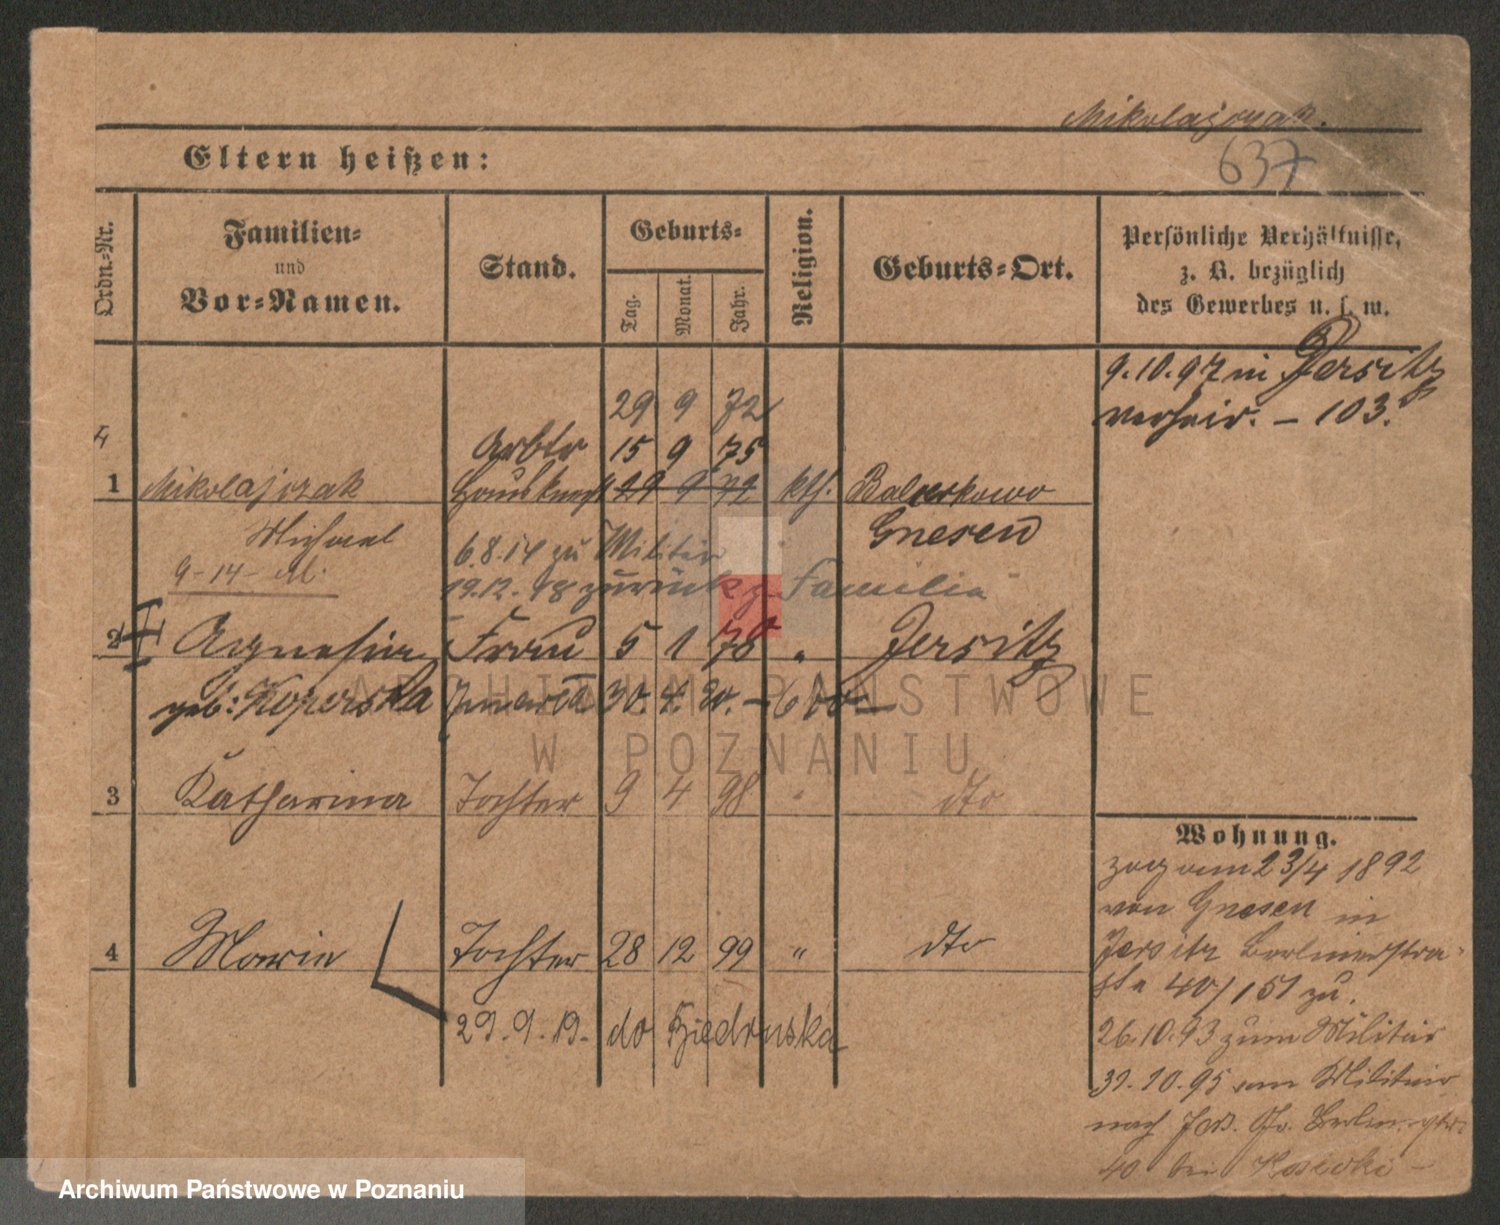 Mikolajczak.
637
Eltern heißen:
Ordn.-Nr.
Familien-
und
Vor-Namen.
Stand.
Geburts-
Tag.
Monat.
Jahr.
Religion.
Geburts-Ort.
Persönliche Verhältnisse,
z. B. bezüglich
des Gewerbes u. s. w.
9.10.97 in Jersitz
verheir. – 103.
29 9 72
4 Arbtr 15 9 75
1 Mikolajczak 29 9 72 kth.
Michael Gnesen
9-14- M. 6.8.14 zu Militär
19.12.18 zurück z. Familie
2 Agnesia Frau 5 1 78 " Jersitz
geb: 30. 4.
ARCHIWUM PAŃSTWOWE
W POZNANIU
3 Katharina Tochter 9 4 98 " dto
Wohnung.
zog am 23/4 1892
von Gnesen in
4 Maria Tochter 28 12 99 " dto
Jersitz Berlinerstra-
ße 40/151 zu.
29.9.19. do Biedruska
26.10.93 zum Militär
31.10.95 vom Militair
nach
40 bei
Archiwum Państwowe w Poznaniu